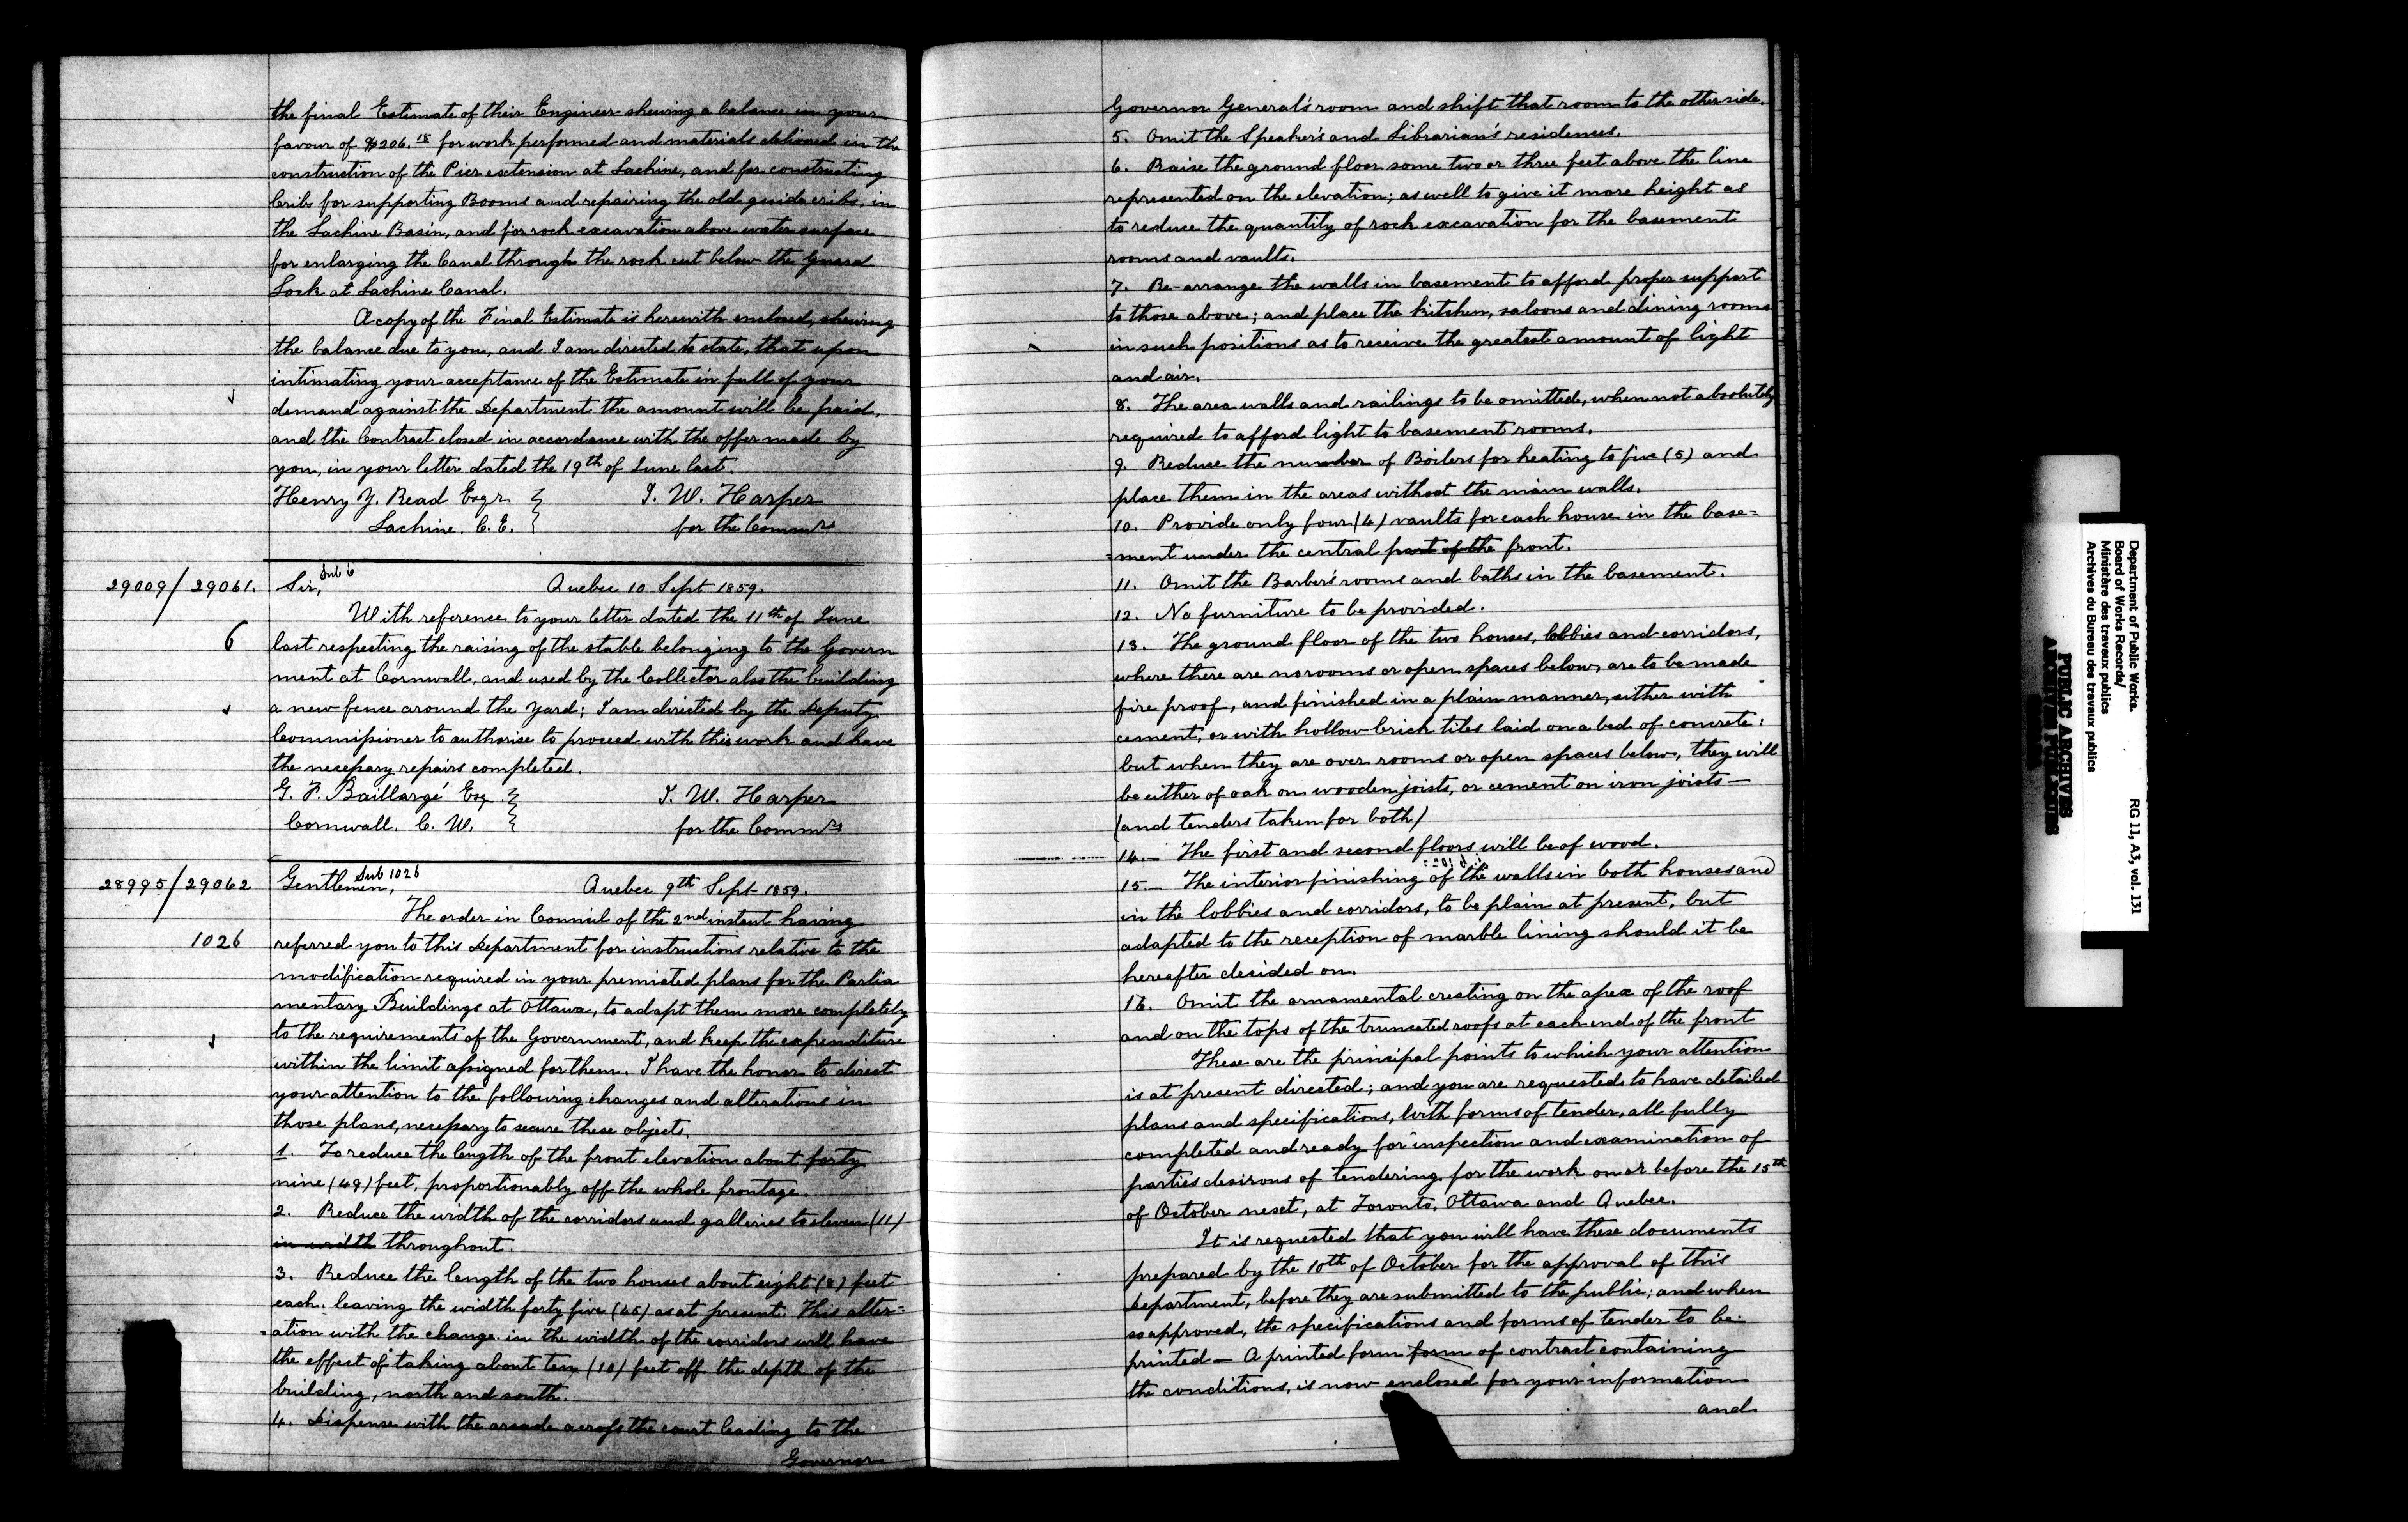 the final Estimate of their Engineer shewing a balance in your
favour of $206.18 for work performed and materials delivered in the
construction of the Pier extension at Lachine, and for constructing
Cribs for supporting Booms and repairing the old guide cribs, in
the Lachine Basin, and for rock excavation above water surface
for enlarging the Canal through the rock cut below the Guard
Lock at Lachine Canal.
A copy of the Final Estimate is herewith enclosed, shewing
the balance due to you, and I am directed to state, that upon
intimating your acceptance of the Estimate in full of your
demand against the Department the amount will be paid,
and the Contract closed in accordance with the offer made by
you, in your letter dated the 19th of June last.
Henry Y. Read Esqr. T. W. Harper
Lachine. C. E. for the Commrs
29009/29061. Sir, Sub 6 Quebec 10 Sept 1859.
With reference to your letter dated the 11th of June
6 last respecting the raising of the stable belonging to the Govern
ment at Cornwall, and used by the Collector also the building
a new fence around the yard; I am directed by the Deputy
Commissioner to authorise to proceed with this work and have
the necessary repairs completed.
G. F. Baillargé Esq. T. W. Harper
Cornwall. C. W. for the Commrs
28995/29062 Gentlemen, Sub 1026 Quebec 9th Sept 1859.
The order in Council of the 2nd instant having
1026 referred you to this Department for instructions relative to the
modification required in your premiated plans for the Parlia
mentary Buildings at Ottawa, to adapt them more completely
to the requirements of the Government, and keep the expenditure
within the limit assigned for them. I have the honor to direct
your attention to the following changes and alterations in
those plans, necessary to secure these objects.
1. To reduce the length of the front elevation about forty
nine (49) feet, proportionably off the whole frontage.
2. Reduce the width of the corridors and galleries to eleven (11)
in width throughout.
3. Reduce the length of the two houses about eight (8) feet
each, leaving the width forty five (45) as at present. This alter=
=ation with the change in the width of the corridors will have
the effect of taking about ten (10) feet off the depth of the
building, north and south.
4. Dispense with the arcade across the court leading to the
Governor
Governor General's room and shift that room to the other side.
5. Omit the Speaker's and Librarian's residences.
6. Raise the ground floor some two or three feet above the line
represented on the elevation; as well to give it more height as
to reduce the quantity of rock excavation for the basement
rooms and vaults.
7. Re-arrange the walls in basement to afford proper support
to those above; and place the kitchen, saloons and dining rooms
in such positions as to receive the greatest amount of light
and air.
8. The area walls and railings to be omitted, when not absolutely
required to afford light to basement rooms.
9. Reduce the number of Boilers for heating to five (5) and
place them in the areas without the main walls.
10. Provide only four (4) vaults for each house in the base=
=ment under the central part of the front.
11. Omit the Barber's rooms and baths in the basement.
12. No furniture to be provided.
13. The ground floor of the two houses, lobbies and corridors,
where there are no rooms or open spaces below, are to be made
fire proof, and finished in a plain manner, either with
cement, or with hollow brick tiles laid on a bed of concrete:
but when they are over rooms or open spaces below, they will
be either of oak on wooden joists, or cement on iron joists—
(and tenders taken for both)
14.— The first and second floors will be of wood.
15.— The interior finishing of the walls in both houses and
in the lobbies and corridors, to be plain at present, but
adapted to the reception of marble lining should it be
hereafter decided on.
16. Omit the ornamental cresting on the apex of the roof
and on the tops of the truncated roofs at each end of the front
These are the principal points to which your attention
is at present directed; and you are requested to have detailed
plans and specifications, with forms of tender, all fully
completed and ready for inspection and examination of
parties desirous of tendering for the work on or before the 15th
of October next, at Toronto, Ottawa and Quebec.
It is requested that you will have these documents
prepared by the 10th of October for the approval of this
Department, before they are submitted to the public; and when
so approved, the specifications and forms of tender to be
printed— A printed form form of contract containing
the conditions, is now enclosed for your information
and
Department of Public Works.
Board of Works Records/
Ministère des travaux publics
Archives du Bureau des travaux publics
RG 11, A3, vol. 131
PUBLIC ARCHIVES
ARCHIVES PUBLIQUES